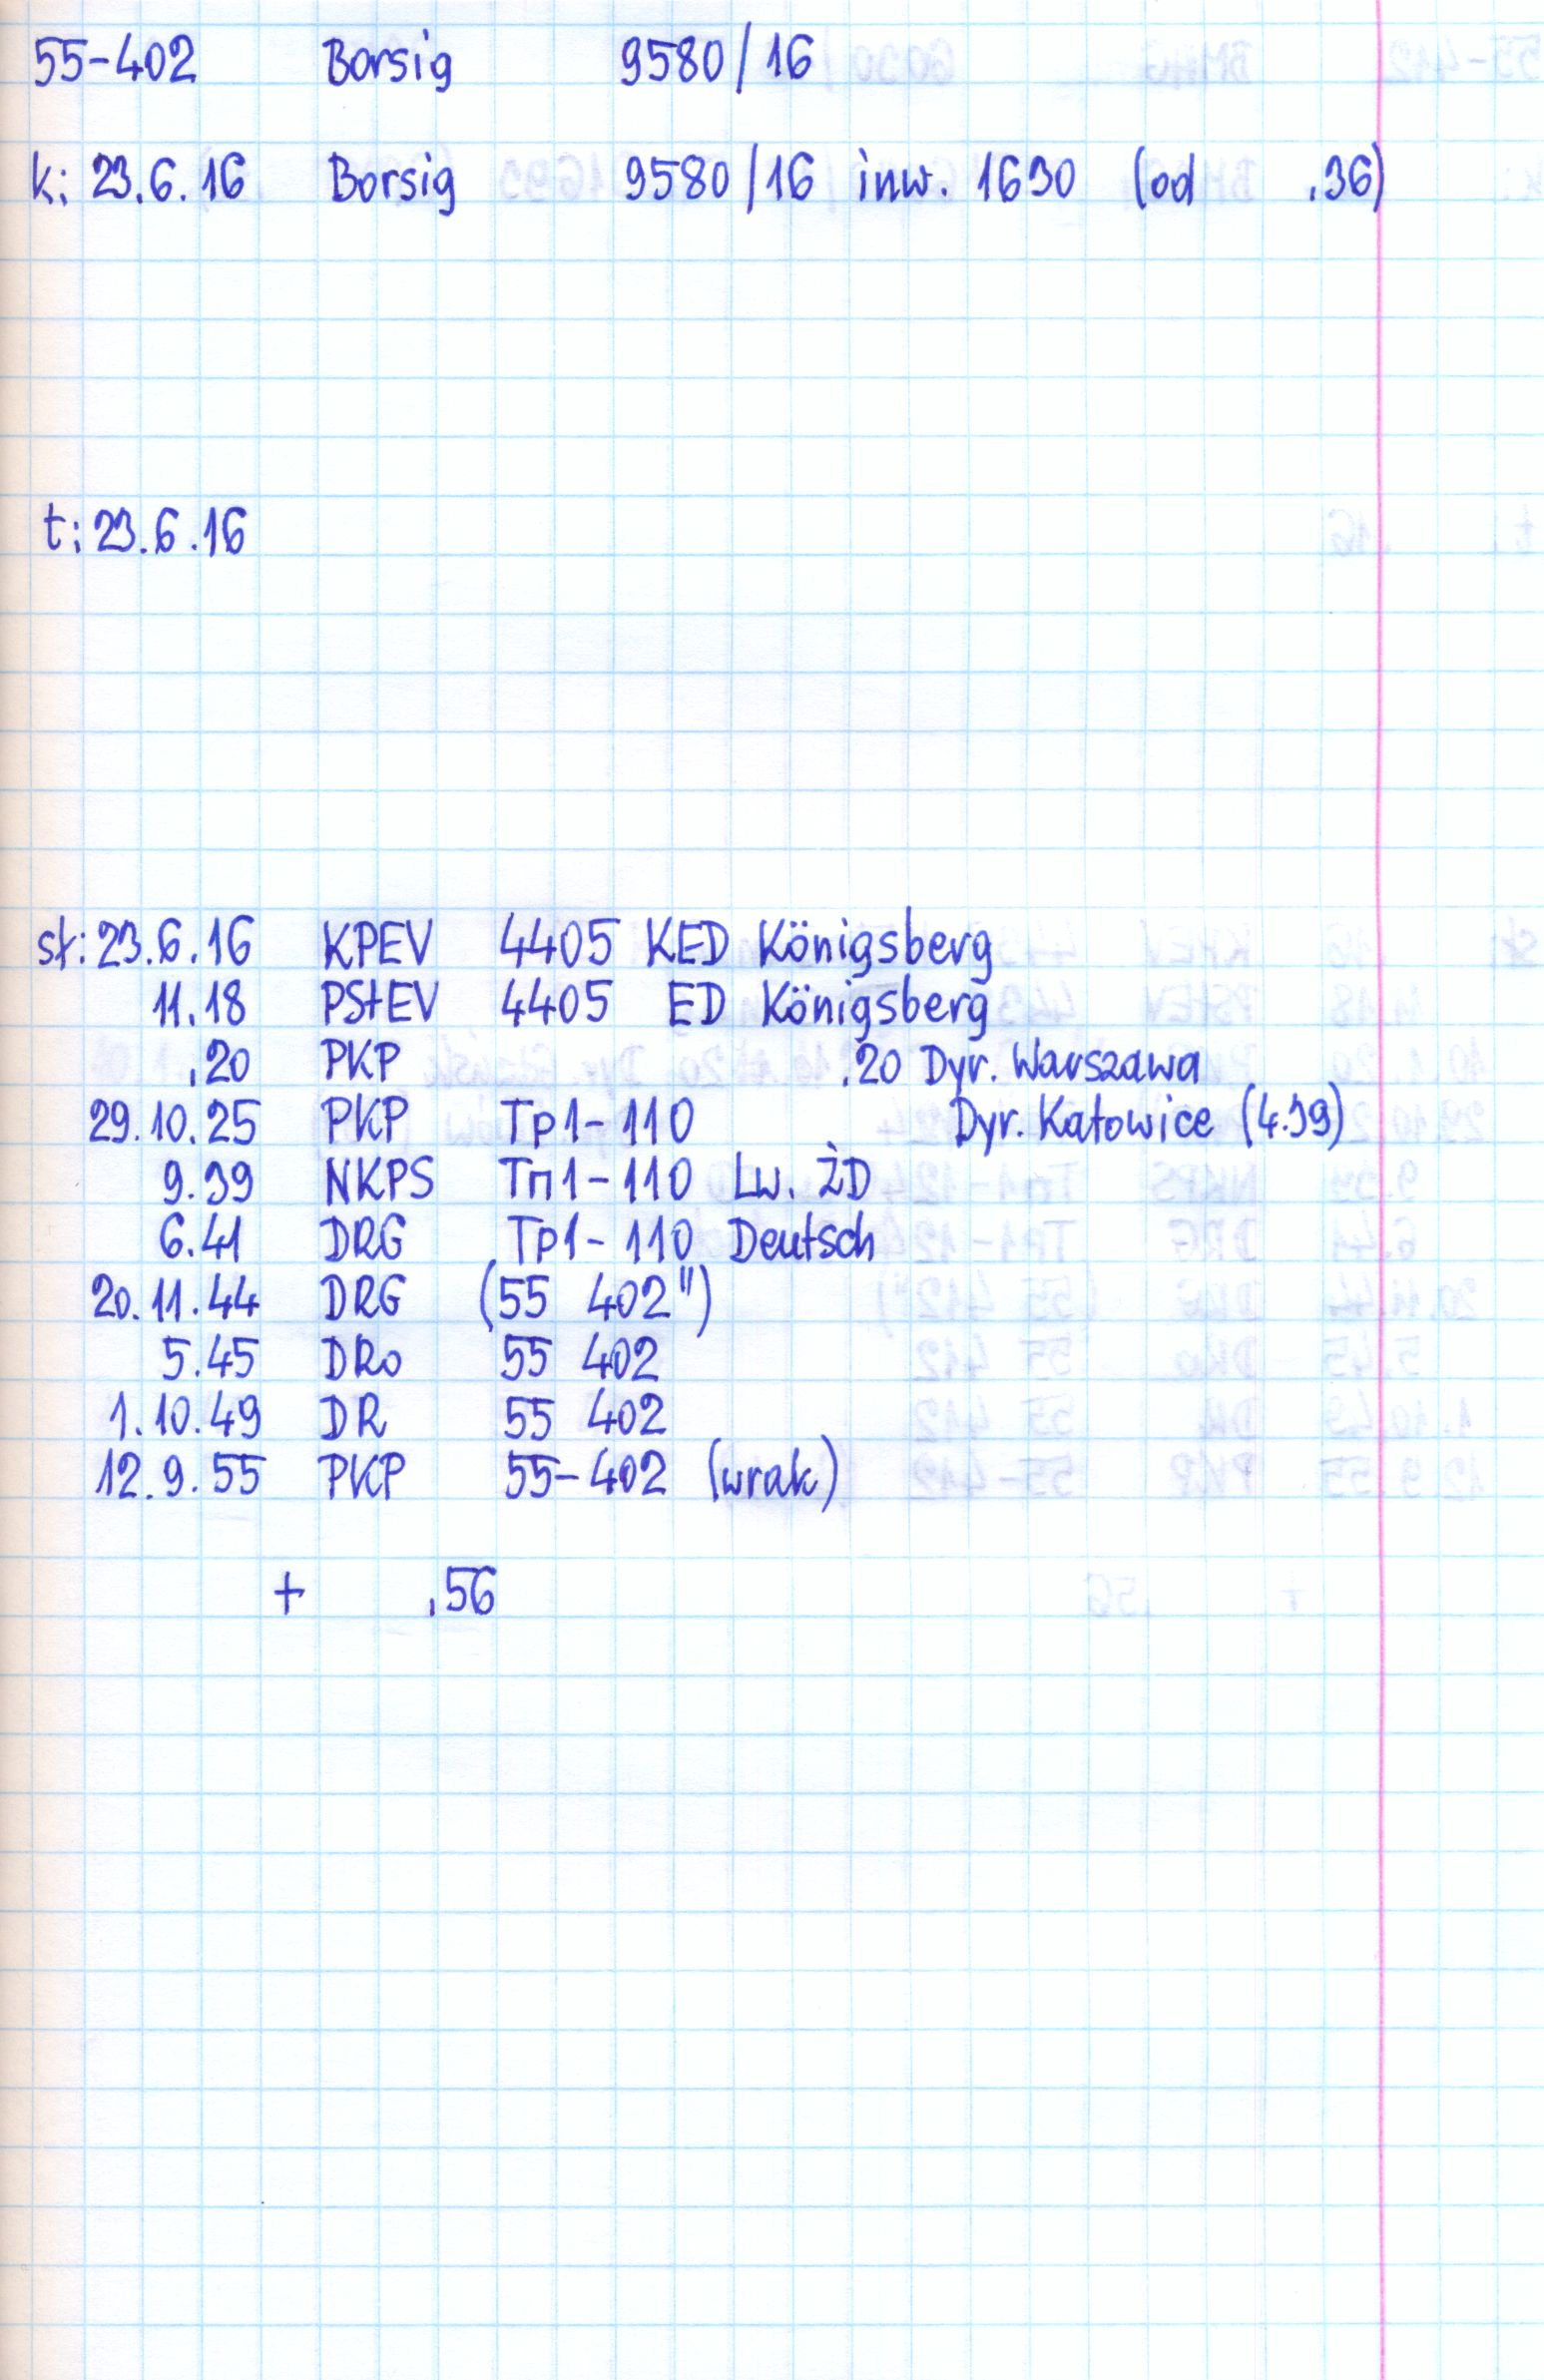 55-402 Borsig 9580/16
k: 23.6.16 Borsig 9580/16 inw. 1630 (od .36)
t: 23.6.16
st: 23.6.16 KPEV 4405 KED Königsberg
11.18 PStEV 4405 ED Königsberg
.20 PKP .20 Dyr. Warszawa
29.10.25 PKP Tp1-110 Dyr. Katowice (4.39)
9.39 NKPS Тп1-110 Lw. ŻD
6.41 DRG Tp1-110 Deutsch
20.11.44 DRG (55 402")
5.45 DRo 55 402
1.10.49 DR 55 402
12.9.55 PKP 55-402 (wrak)
+ .56